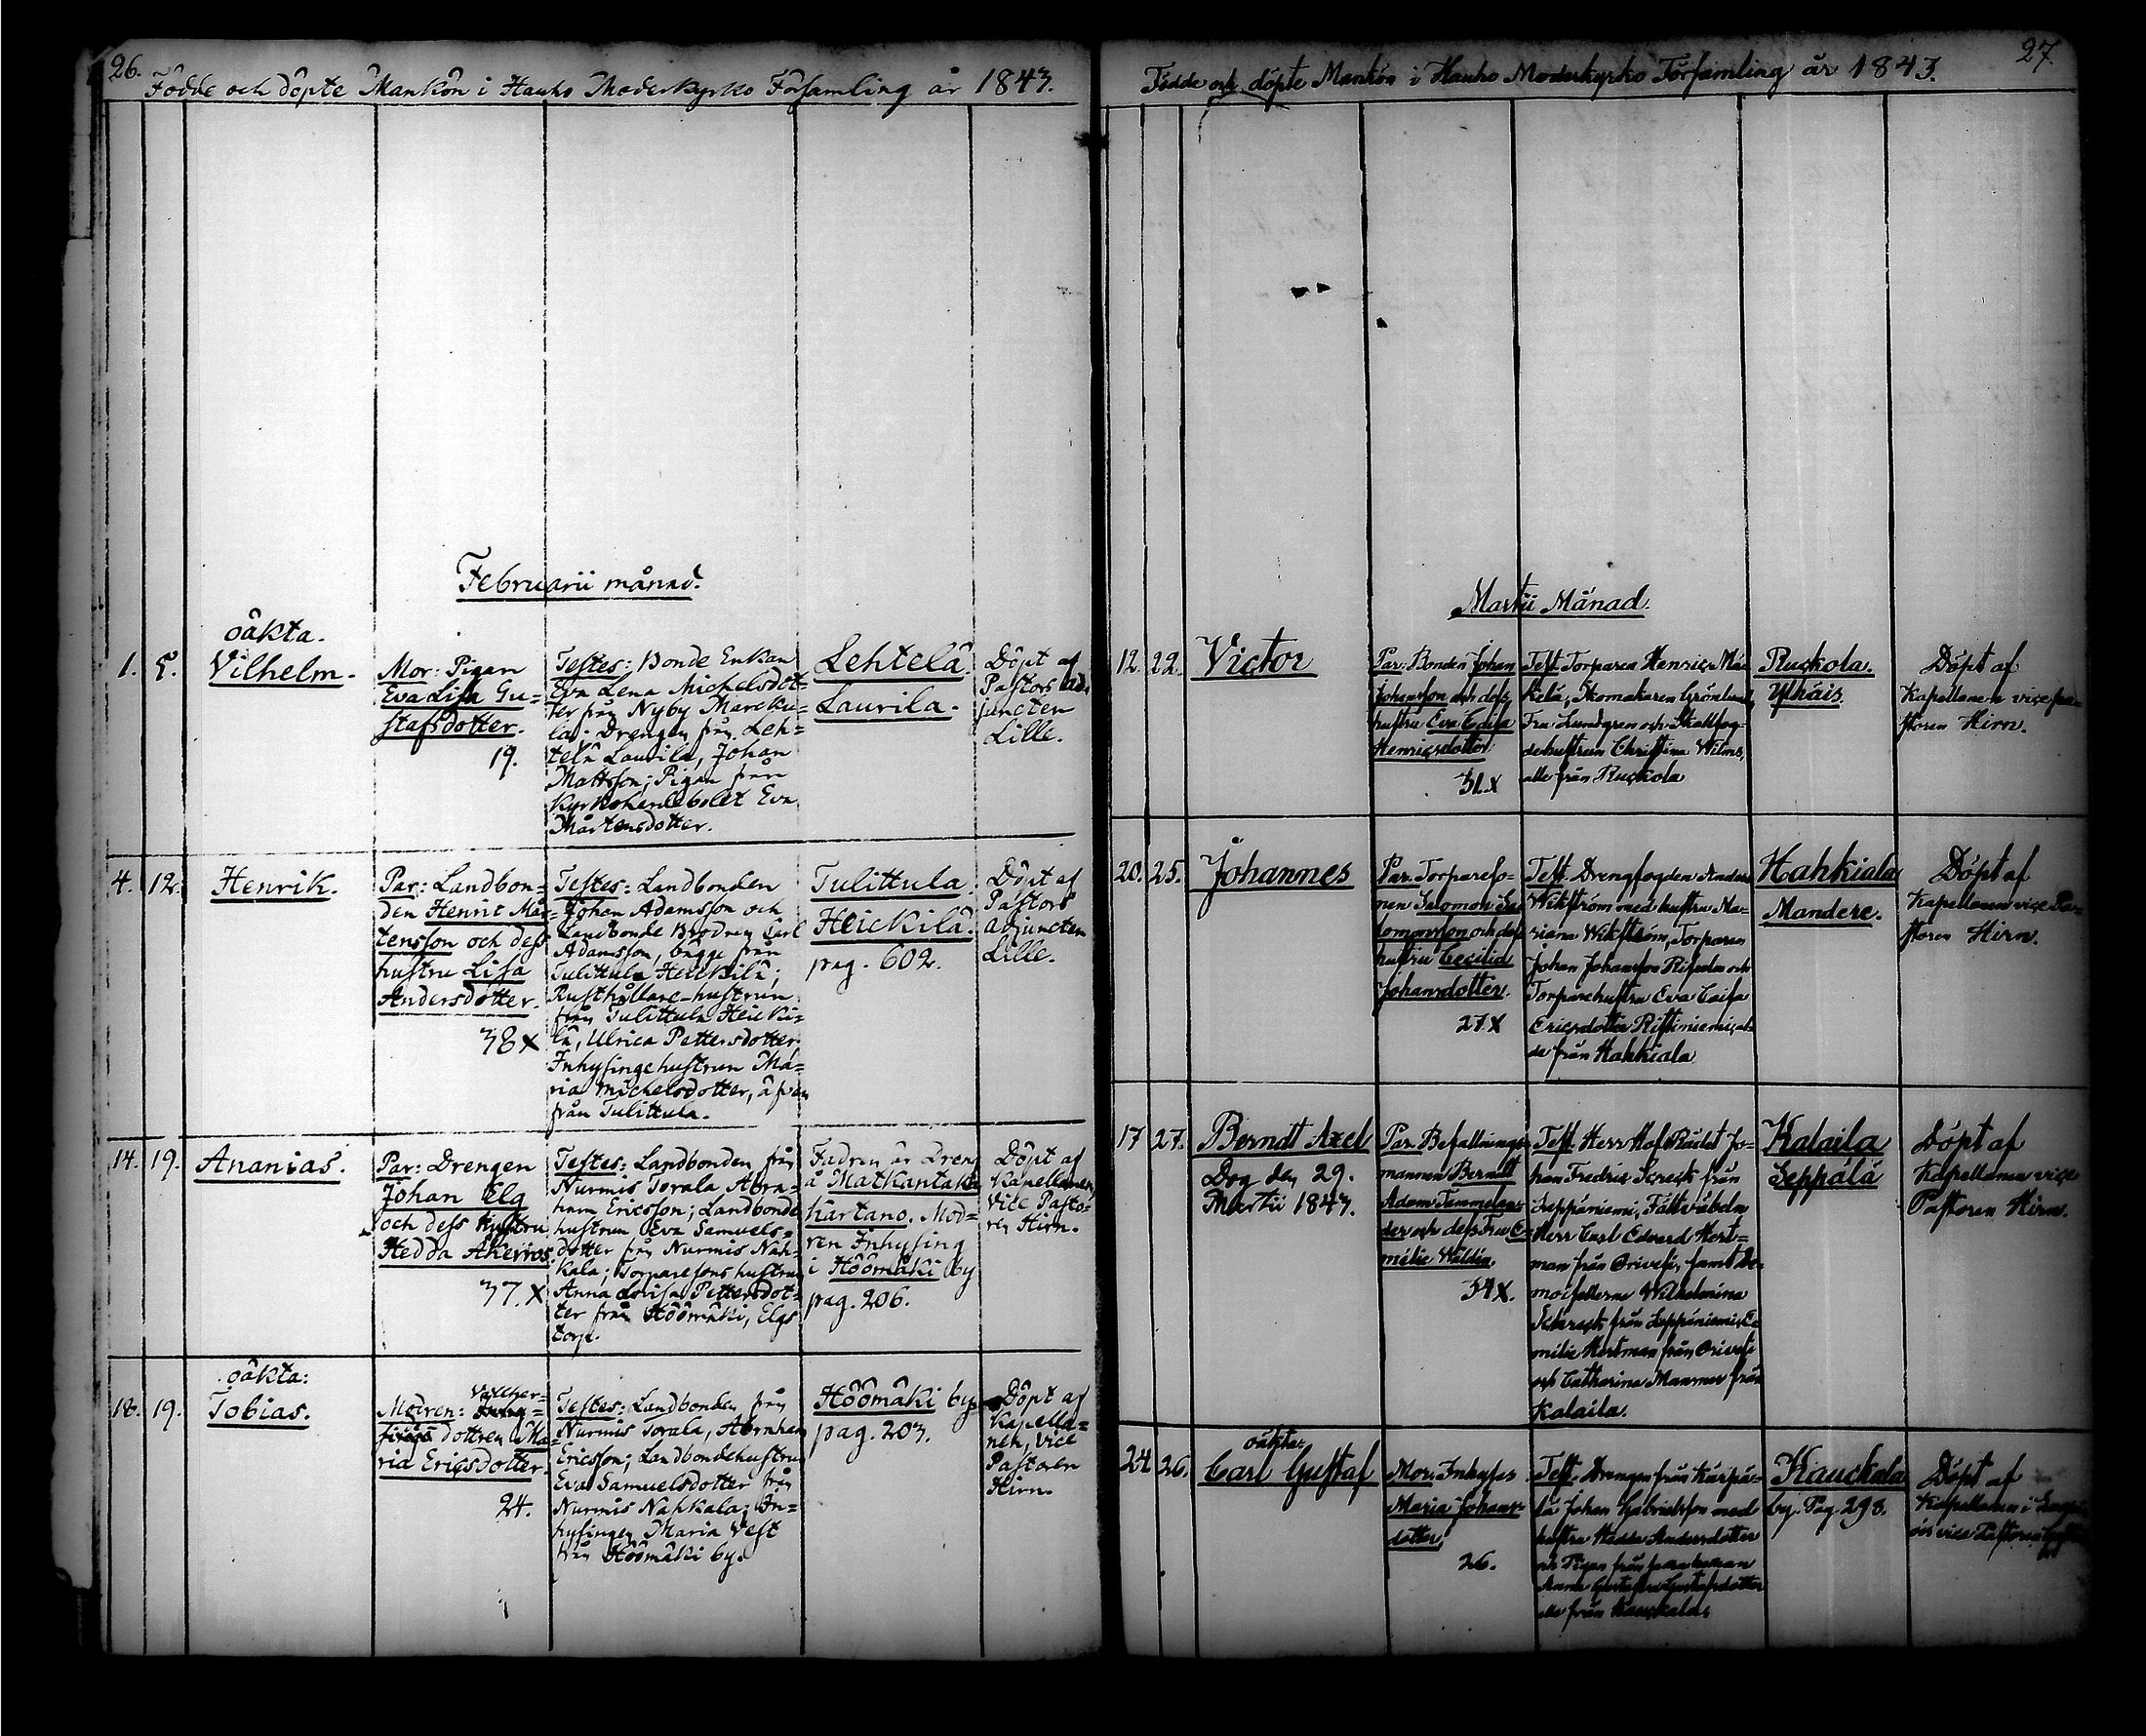 26.
Födde och döpte Mankön i Hauho Moderkyrko Församling år 1843.
Februarii månad.
1. 5.
oäkta.
Vilhelm.
Mor: Pigan
Eva Lisa Gu-
stafsdotter.
19.
Testes: Bonde Enkan
Eva Lena Michelsdot-
ter från Nyby Marcku-
la; Drengen från Leh-
telä Laurila, Johan
Mattsson; Pigan från
Kyrkoherdebolet Eva
Mårtensdotter.
Lehtelä
Laurila.
Döpt af
Pastors Ad-
juncten
Lille.
4. 12.
Henrik.
Par: Landbon-
den Henric Mår-
tensson och dess
hustru Lisa
Andersdotter.
38 x
Testes: Landbonden
Johan Adamsson och
Landbonde Brodren Carl
Adamsson, bägge från
Tulittula Heickilä;
Rusthållare-hustrun
från Tulittula Heicki-
lä, Ulrica Pettersdotter
Inhysingehustrun Ma-
ria Michelsdotter, äfven
från Tulittula.
Tulittula
Heickilä.
pag. 602.
Döpt af
Pastors
adjuncten
Lille.
14. 19.
Ananias.
Par: Drengen
Johan Elg
och dess hustru
Hedda Akerros.
37. x
Testes: Landbonden från
Nurmis Torala Abra-
ham Ericsson; Landbonde
hustrun Eva Samuels-
dotter från Nurmis Nah-
kala; Torparesons hustrun
Anna Lovisa Pettersdot-
ter från Höömäki, Elgs
torp.
Fadren är Dreng
å Matkantaka
Kartano. Mod-
ren Inhysing
i Höömäki by
pag. 206.
Döpt af
Kapellanen,
Vice Pasto-
ren Hirn.
18. 19.
oäkta:
Tobias.
Modren:
dottren Ma-
ria Ericsdotter.
24.
Testes: Landbonden från
Nurmis Torala, Abraham
Ericsson; Landbondehustrun
Eva Samuelsdotter från
Nurmis Nahkala; In-
hysingen Maria Vest
från Höömäki by.
Höömäki by
pag. 203.
Döpt af
Kapella-
nen, Vice
Pastoren
Hirn.
27.
Födde och döpte Mankön i Hauho Moderkyrko Församling år 1843.
Martii Månad.
12. 22.
Victor
Par. Bonden Johan
Johansson och dess
hustru Eva Caisa
Henricsdotter
31. x
Test. Torparen Henric Mä-
kilä, Skomakaren Grönlund,
Fru Lundgren och Skallfog-
dehustrun Christina Wilms,
alle från Ruckola
Ruckola.
Yphäis.
Döpt af
Kapellanen vice Pa-
storen Hirn.
20. 25.
Johannes
Par. Torpareso-
nen Salomon Sa-
lomonsson och dess
hustru Cecilia
Johansdotter.
27. x
Test. Drengfogden Anders
Wikström med hustru Ma-
riana Wikström, Torparen
Johan Johansson och
Torparehustru Eva Caisa
Ericsdotter
från Hahkiala
Hahkiala
Mandere.
Döpt af
Kapellanen vice Pa-
storen Hirn.
17 27.
Berndt Axel
Dog den 29.
Martii 1843.
Par. Befallnings-
mannen Berndt
Adam
och dess Fru E-
milie
34 x.
Test. Herr Hof Rådet Jo-
han Fredric Screck från
Seppäniemi, Fältväbeln
Herr Carl Edvard Hert-
man från Orivesi, samt De-
moisellerne Wilhelmina
från Seppäniemi, E-
milie Hertman från Orivesi
och Catharina från
Kalaila.
Kalaila
Seppälä
Döpt af
Kapellanen vice
Pastoren Hirn.
24 26.
oäkta:
Carl Gustaf
Mor: Inhyses
Maria Johans-
dotter
26.
Test. Drengen från Kärpä-
lä Johan Gabrielsson med
hustru Hedda Andersdotter
och Pigan från
Anna Gustafva Gustafsdotter
alle från Kauckala.
Kauckala
by. Pag. 298.
Döpt af
Kapellanen i
vice Pastoren